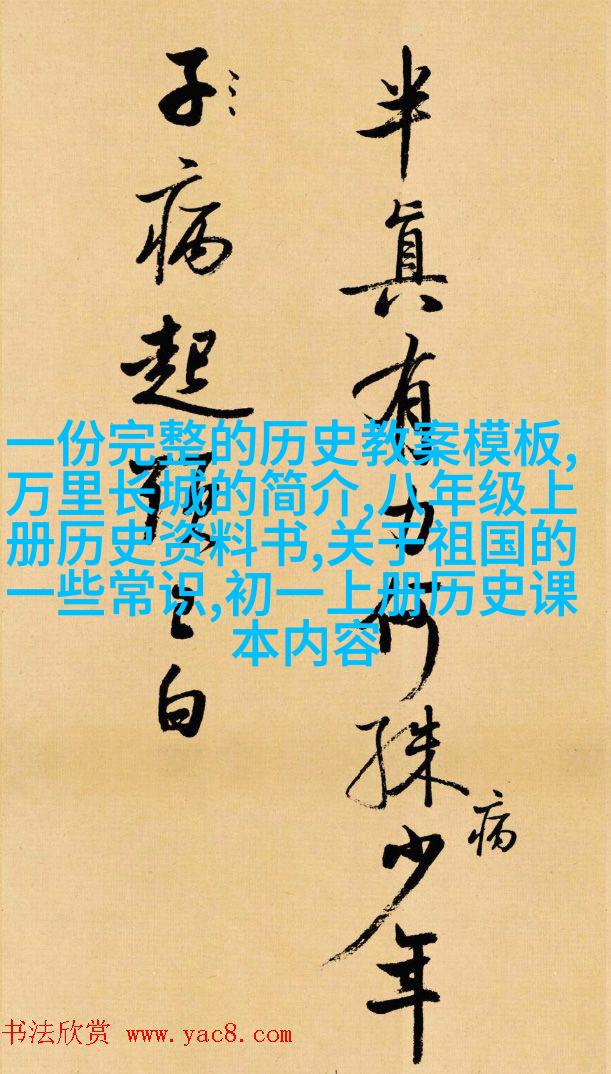 半真有力何殊少年
病
子病起須已白
一份完整的历史教案模板,
万里长城的简介,八年级上
册历史资料书,关于祖国的
一些常识,初一上册历史课
本内容
书法欣赏 www.yac8.com